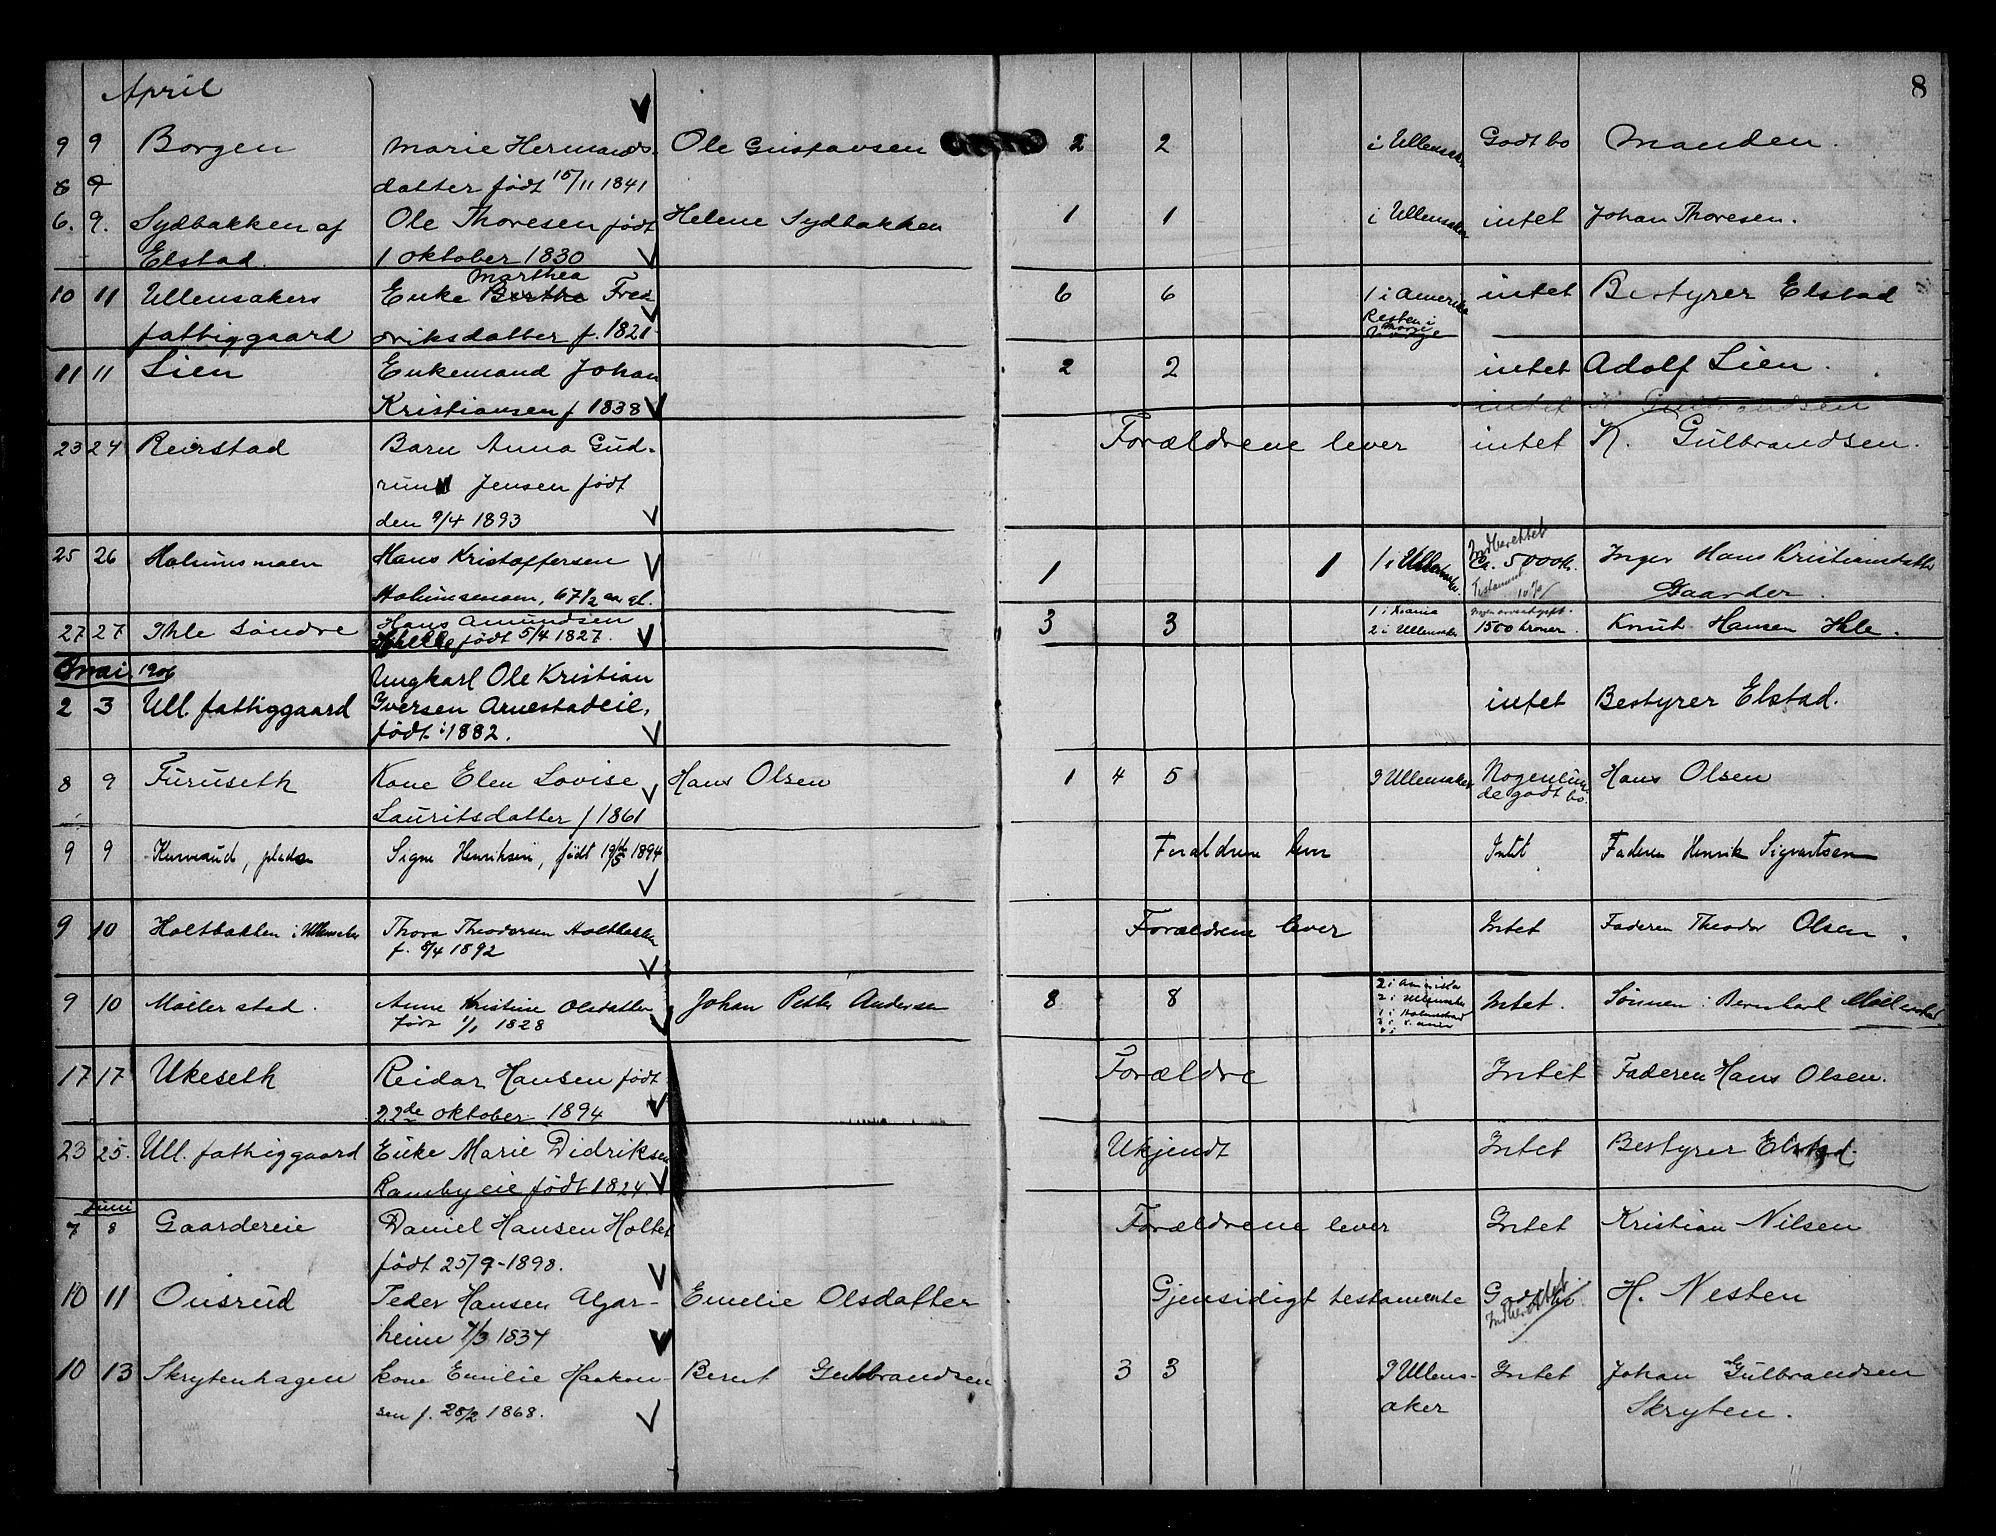 8
April
9 9 Borgen Marie Hermands- Ole Gustavsen 2 2 i Ullensaker Godt bo Manden.
8 9 datter født 15/11 1841
6. 9. Sydbakken af Ole Thoresen født Helene Sydbakken 1 1 i Ullensaker intet Johan Thoresen.
Elstad. 1 oktober 1830
Marthea
10 11 Ullensakers Enke Berthe Fred 6 6 1 i Amerika intet Bestyrer Elstad
fattiggaard riksdatter f. 1821 Resten i Norge
11 11 Lien Enkemand Johan 2 2 intet Adolf Lien.
Kristiansen f 1838
intet K. Gulbrandsen
23 24 Reierstad Barn Anna Gud- Forældrene lever intet K. Gulbrandsen.
run Jensen født
den 9/4 1893
Indberettet
25 26 Holumsmoen Hans Kristoffersen 1 1 1 i Ullensaker Ca. 5000 kr. Inger Hans Kristiansdatter
Holumsmoen, 67 1/2 aar gl. Testament 10% Gaarder.
27 27 Ihle Søndre Hans Amundsen 3 3 1 i Krania
født 5/4 1827. 2 i Ullensaker 1500 kroner. Knut Hansen Ihle.
mai 1906 Ungkarl Ole Kristian
2 3 Ull. fattiggaard Iversen Arnestadeie, intet Bestyrer Elstad.
født i 1882.
8 9 Furuseth Kone Elen Lovise Hans Olsen 1 4 5 I Ullensaker Nogenlun- Hans Olsen
Lauritsdatter f 1861 de godt bo.
9 9 plads Signe Henriksen, født 19de/5 1894 Forældrene lever Intet Faderen Henrik Sigvartsen
9 10 Holtbakken i Ullensaker Thora Theodorsen Holtbakken Forældrene lever Intet Faderen Theodor Olsen.
f. 8/4 1892
9 10 Møllerstad. Anne Kristine Olsdatter Johan Petter Andersen 8 8 2 i Amerika Intet. Sønnen: Bernhard Møllerstad.
født 1/1 1828 2 i Ullensaker
1 i Holmestrand
17 17 Ukeseth Reidar Hansen født Forældre Intet Faderen Hans Olsen.
22de oktober 1894
23 25. Ull. fattiggaard Enke Marie Didriksen Ukjendt Intet Bestyrer Elstad.
Rambyeie født 1824.
Juni
7 8 Gaardereie Daniel Hansen Holtet Forældrene lever Intet Kristian Nilsen
født 25/9-1898.
10 11 Onsrud Peder Hansen Algar- Emelie Olsdatter Gjensidigt testamente Godt bo H. Nesten
heim 7/3 1834 Indberettet
10 13 Skrytenhagen kone Emilie Haakon- Bernt Gulbrandsen 3 3 I Ullens- Intet Johan Gulbrandsen
sen f. 28/2 1868. aker Skryten.